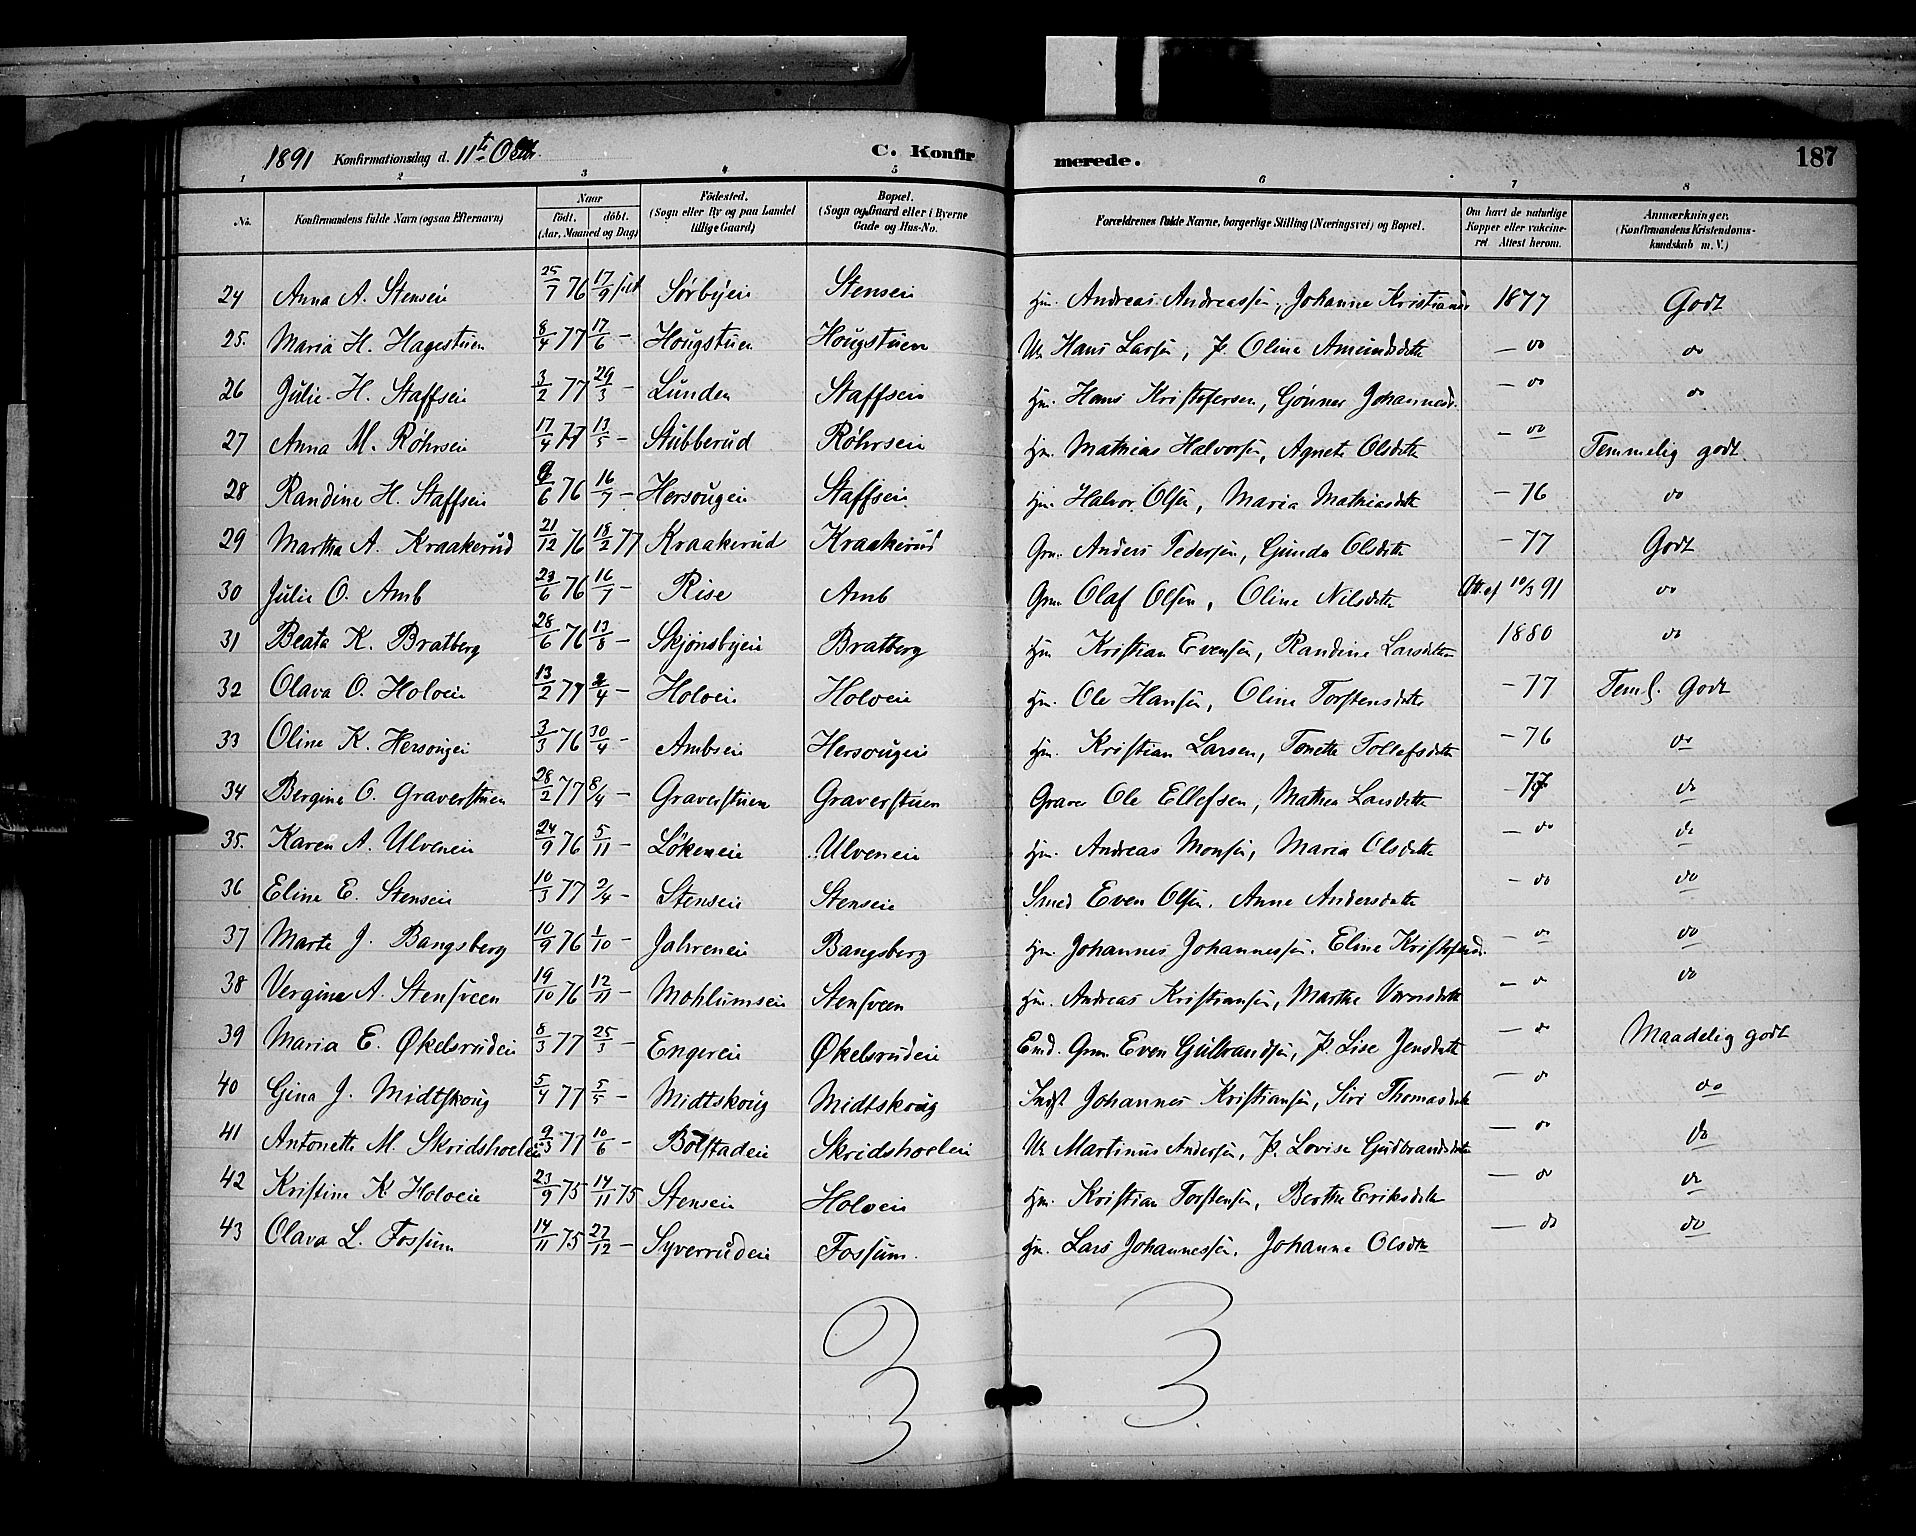 1891 Konfirmationsdag d. 11te Oktbr. C. Konfir merede. 187
1 2 3 4 5 6 7 8
No. Konfirmandens fulde Navn (ogsaa Efternavn) Naar födt. döbt. (Aar, Maaned og Dag) Födested. (Sogn eller By og paa Landet tillige Gaard) Bopæl. (Sogn og Gaard eller i Byerne Gade og Hus-No. Forældrenes fulde Navne, borgerlige Stilling (Næringsvei) og Bopæl. Om havt de naturlige Kopper eller vakcineret Attest herom. Anmærkninger. (Konfirmandens Kristendomskundskab m. V.)
24 Anna A. Stenseie 25/7 76 17/9 Sörbyeie Stenseie Hm. Andreas Andreassen, Johanne Kristiansd 1877 Godt
25. Maria H. Hagestuen 8/4 77 17/6 – Hougstuen Hougstuen Uk Hans Larsen, P. Oline Amundsdatter – do do
26 Julie H. Staffseie 3/2 77 29/3 – Lunden Staffseie Hm. Hans Kristofersen, Gönner Johannesd. – do do
27 Anna M. Röhrseie 17/4 77 13/5 – Stubberud Röhrseie Hm. Mathias Halvorsen, Agnete Olsdatter – do Temmelig godt.
28 Randine H. Staffseie 9/6 76 16/7 – Hersougeie Staffseie Hm. Halvor Olsen, Maria Mathiasdatter – 76 do
29 Martha A. Kraakerud 21/12 76 18/2 77 Kraakerud Kraakerud Grm. Anders Pedersen, Gunda Olsdatter – 77 Godt
30 Julie O. Amb 23/6 76 16/7 – Rise Amb Grm. Olaf Olsen, Oline Nilsdatter Att. af 10/3 91 do
31 Beata K. Bratberg 28/6 76 13/8 – Skjönsbyeie Bratberg Hm Kristian Evensen, Randine Larsdatter 1880 do
32 Olava O. Holoeie 13/2 77 2/4 – Holoeie Holoeie Hm. Ole Hansen, Oline Torstensdatter – 77 Teml. Godt
33 Oline K. Hersougeie 3/3 76 30/4 – Ambseie Hersougeie Hm. Kristian Larsen, Tonette Tollefsdatter – 76 do
34 Bergine O. Graverstuen 28/2 77 8/4 – Graverstuen Graverstuen Graver Ole Ellefsen, Mathea Larsdatter – 77 do
35. Karen A. Ulveneie 24/9 76 5/11 – Lökeneie Ulveneie Hm. Andreas Monsen, Maria Olsdatter – do do
36 Eline E. Stenseie 10/3 77 2/4 – Stenseie Stenseie Smed Even Olsen. Anne Andersdatter – do do
37 Marte J. Bangsberg 10/9 76 1/10 – Jahreneie Bangsberg Hm. Johannes Johannessen. Eline Kristofersd. – do do
38 Vergine A. Stensveen 19/10 76 12/11 – Mohlumseie Stensveen Hm. Andreas Kristiansen, Marthe – do do
39 Maria E. Økelsrudeie 8/3 77 25/3 – Engereie Økelsrudeie Em. Grm. Even Gulbrandsen, P. Lise Jensdatter – do Maadelig godt
40 Gina J. Midtskoug 5/4 77 5/5 – Midtskoug Midtskoug Indst Johannes Kristiansen, Siri Thomasdatter – do do
41 Antonette M. Skridshoeleie 9/3 77 10/6 – Bolstadeie Skridshoeleie Uk Martinus Andersen, P. Lovise Gudbrandsdatter – do do
42 Kristine K. Holoeie 23/9 75 14/11 75 Stenseie Holoeie Hm. Kristian Torstensen, Berthe Eriksdatter – do do
43 Olava L. Fossum 14/11 75 27/12 – Syverrudeie Fossum. Hm. Lars Johannessen. Johanne Olsdtr – do do
3 3